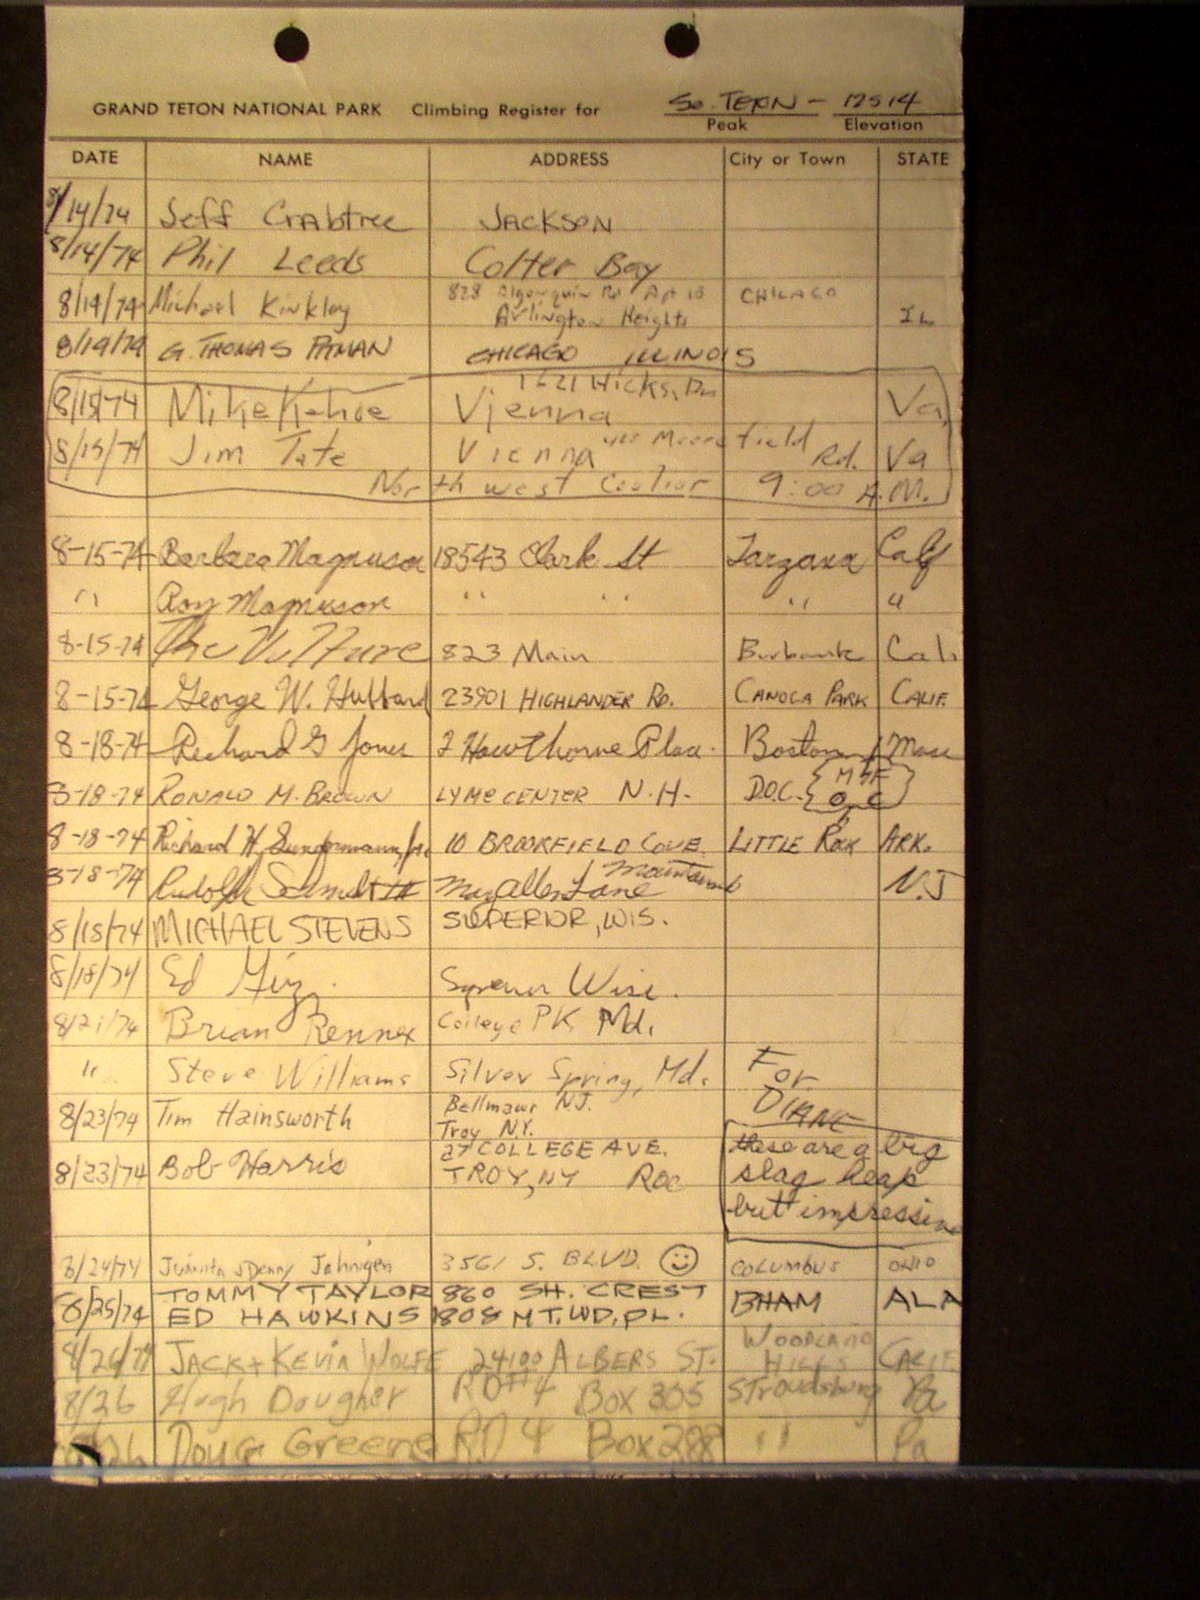 GRAND TETON NATIONAL PARK Climbing Register for So. TETON - 12514
Peak Elevation
DATE NAME ADDRESS City or Town STATE
8/14/74 Jeff Crabtree JACKSON
8/14/74 Phil Leeds Colter Bay
8/14/74 Michael Kinkley 828 Algonquin Rd Apt CHICAGO
Arlington Heights IL
8/14/74 G. THOMAS PITMAN CHICAGO ILLINOIS
1621 Hicks, Dr
8/15/74 Mike Kehoe Vienna Va
8/15/74 Jim Tate Vienna Moorefield Rd. Va
North west Couliur 9:00 A.M.
8-15-74 Barbara Magnuson 18543 Clark St Tarzana Calif
" Roy Magnuson " " " "
8-15-74 The Vulture 823 Main Burbank Cal.
8-15-74 George W. Hubbard 23901 HIGHLANDER RD. CANOGA PARK CALIF.
8-18-74 Richard G Jones 2 Hawthorne Place Boston, Mass
8-18-74 RONALD M. BROWN LYME CENTER N.H. D.O.C.
8-18-74 Richard H. Sundermann, Jr. 10 BROOKFIELD COVE LITTLE ROCK ARK.
8-18-74 Rudolph Schmidt III Lane N.J
8/18/74 MICHAEL STEVENS SUPERIOR, WIS.
8/18/74 Ed Superior Wisc.
8/21/74 Brian Rennex College PK, Md.
" Steve Williams Silver Spring, Md. For
DIANE
8/23/74 Tim Hainsworth Bellmawr NJ.
Troy N.Y.
8/23/74 Bob Harris 27 COLLEGE AVE.
TROY, NY
these are a big
slag heap
but impressive
8/24/74 Denny Jahnigen 3561 S. BLVD. COLUMBUS OHIO
8/25/74 TOMMY TAYLOR 860 SH. CREST BHAM ALA
ED HAWKINS 1808 MT. WD. PL.
8/26/74 JACK + KEVIN WOLFE 24100 ALBERS ST. WOODLAND HILLS CALIF
8/26 Hugh Dougher RD#4 Box 305 Stroudsburg Pa
8/26 Doug Greene RD 4 Box 288 " Pa